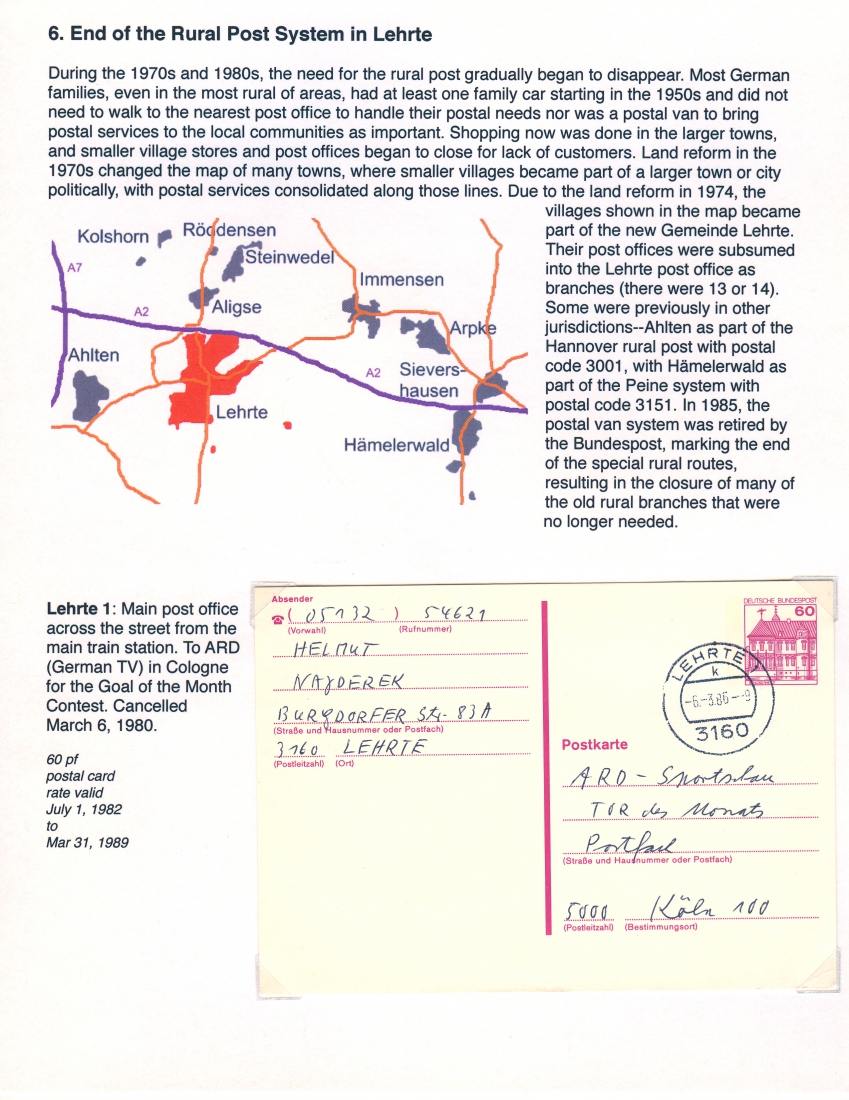 6. End of the Rural Post System in Lehrte
During the 1970s and 1980s, the need for the rural post gradually began to disappear. Most German
families, even in the most rural of areas, had at least one family car starting in the 1950s and did not
need to walk to the nearest post office to handle their postal needs nor was a postal van to bring
postal services to the local communities as important. Shopping now was done in the larger towns,
and smaller village stores and post offices began to close for lack of customers. Land reform in the
1970s changed the map of many towns, where smaller villages became part of a larger town or city
politically, with postal services consolidated along those lines. Due to the land reform in 1974, the
villages shown in the map became
part of the new Gemeinde Lehrte.
Their post offices were subsumed
into the Lehrte post office as
branches (there were 13 or 14).
Some were previously in other
jurisdictions--Ahlten as part of the
Hannover rural post with postal
code 3001, with Hämelerwald as
part of the Peine system with
postal code 3151. In 1985, the
postal van system was retired by
the Bundespost, marking the end
of the special rural routes,
resulting in the closure of many of
the old rural branches that were
no longer needed.
Kolshorn
Röddensen
Steinwedel
A7
Immensen
A2
Aligse
Arpke
Ahlten
A2
Sievers-
hausen
Lehrte
Hämelerwald
Lehrte 1: Main post office
across the street from the
main train station. To ARD
(German TV) in Cologne
for the Goal of the Month
Contest. Cancelled
March 6, 1980.
60 pf
postal card
rate valid
July 1, 1982
to
Mar 31, 1989
Absender
( 05132 ) 54621
(Vorwahl) (Rufnummer)
HELMUT
NAYDEREK
BURGDORFER Str. 83A
(Straße und Hausnummer oder Postfach)
3160 LEHRTE
(Postleitzahl) (Ort)
DEUTSCHE BUNDESPOST
60
LEHRTE 1
k
-6.-3.86--9
3160
Postkarte
ARD - Sportschau
TOR des Monats
Postfach
(Straße und Hausnummer oder Postfach)
5000 Köln 100
(Postleitzahl) (Bestimmungsort)